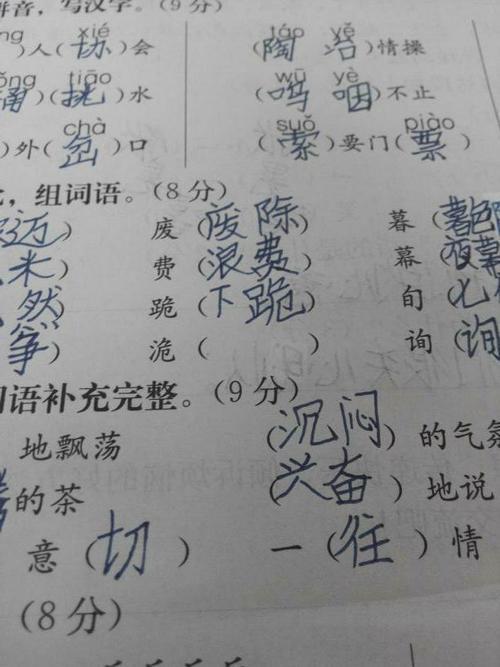 拼音，写汉字。(9分)
xié táo yě
)人(协)会 (陶冶)情操
tiāo wū yè
(挑)水 (呜咽)不止
chà suǒ piào
)外(岔)口 (索)要门(票)
组词语。(8分)
迈) 废(废除) 暮(暮
米) 费(浪费) 幕(夜幕
然) 跪(下跪) 旬(七
筝) 诡( ) 询(询
词语补充完整。(9分)
地飘荡 (沉闷)的气氛
的茶 (兴奋)地说
意(切) 一(往)情
(8分)